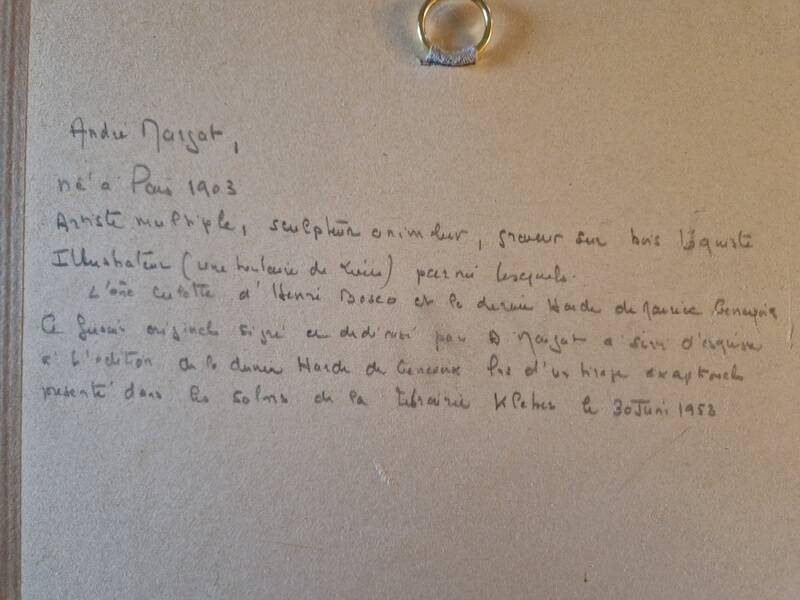 André Margat,
né à Paris 1903
Artiste multiple, sculpteur animalier, graveur sur bois laquiste
Illustrateur (une centaine de livres) parmi lesquels.
L'âne culotte d'Henri Bosco et la dernière Harde de Maurice Genevoix
Ce fusain original signé et dédicacé par A Margat a servi d'esquisse
à l'édition de la dernière Harde de Genevoix lors d'un tirage exceptionnel
présenté dans les salons de la Librairie Kleber le 30 Juin 1953